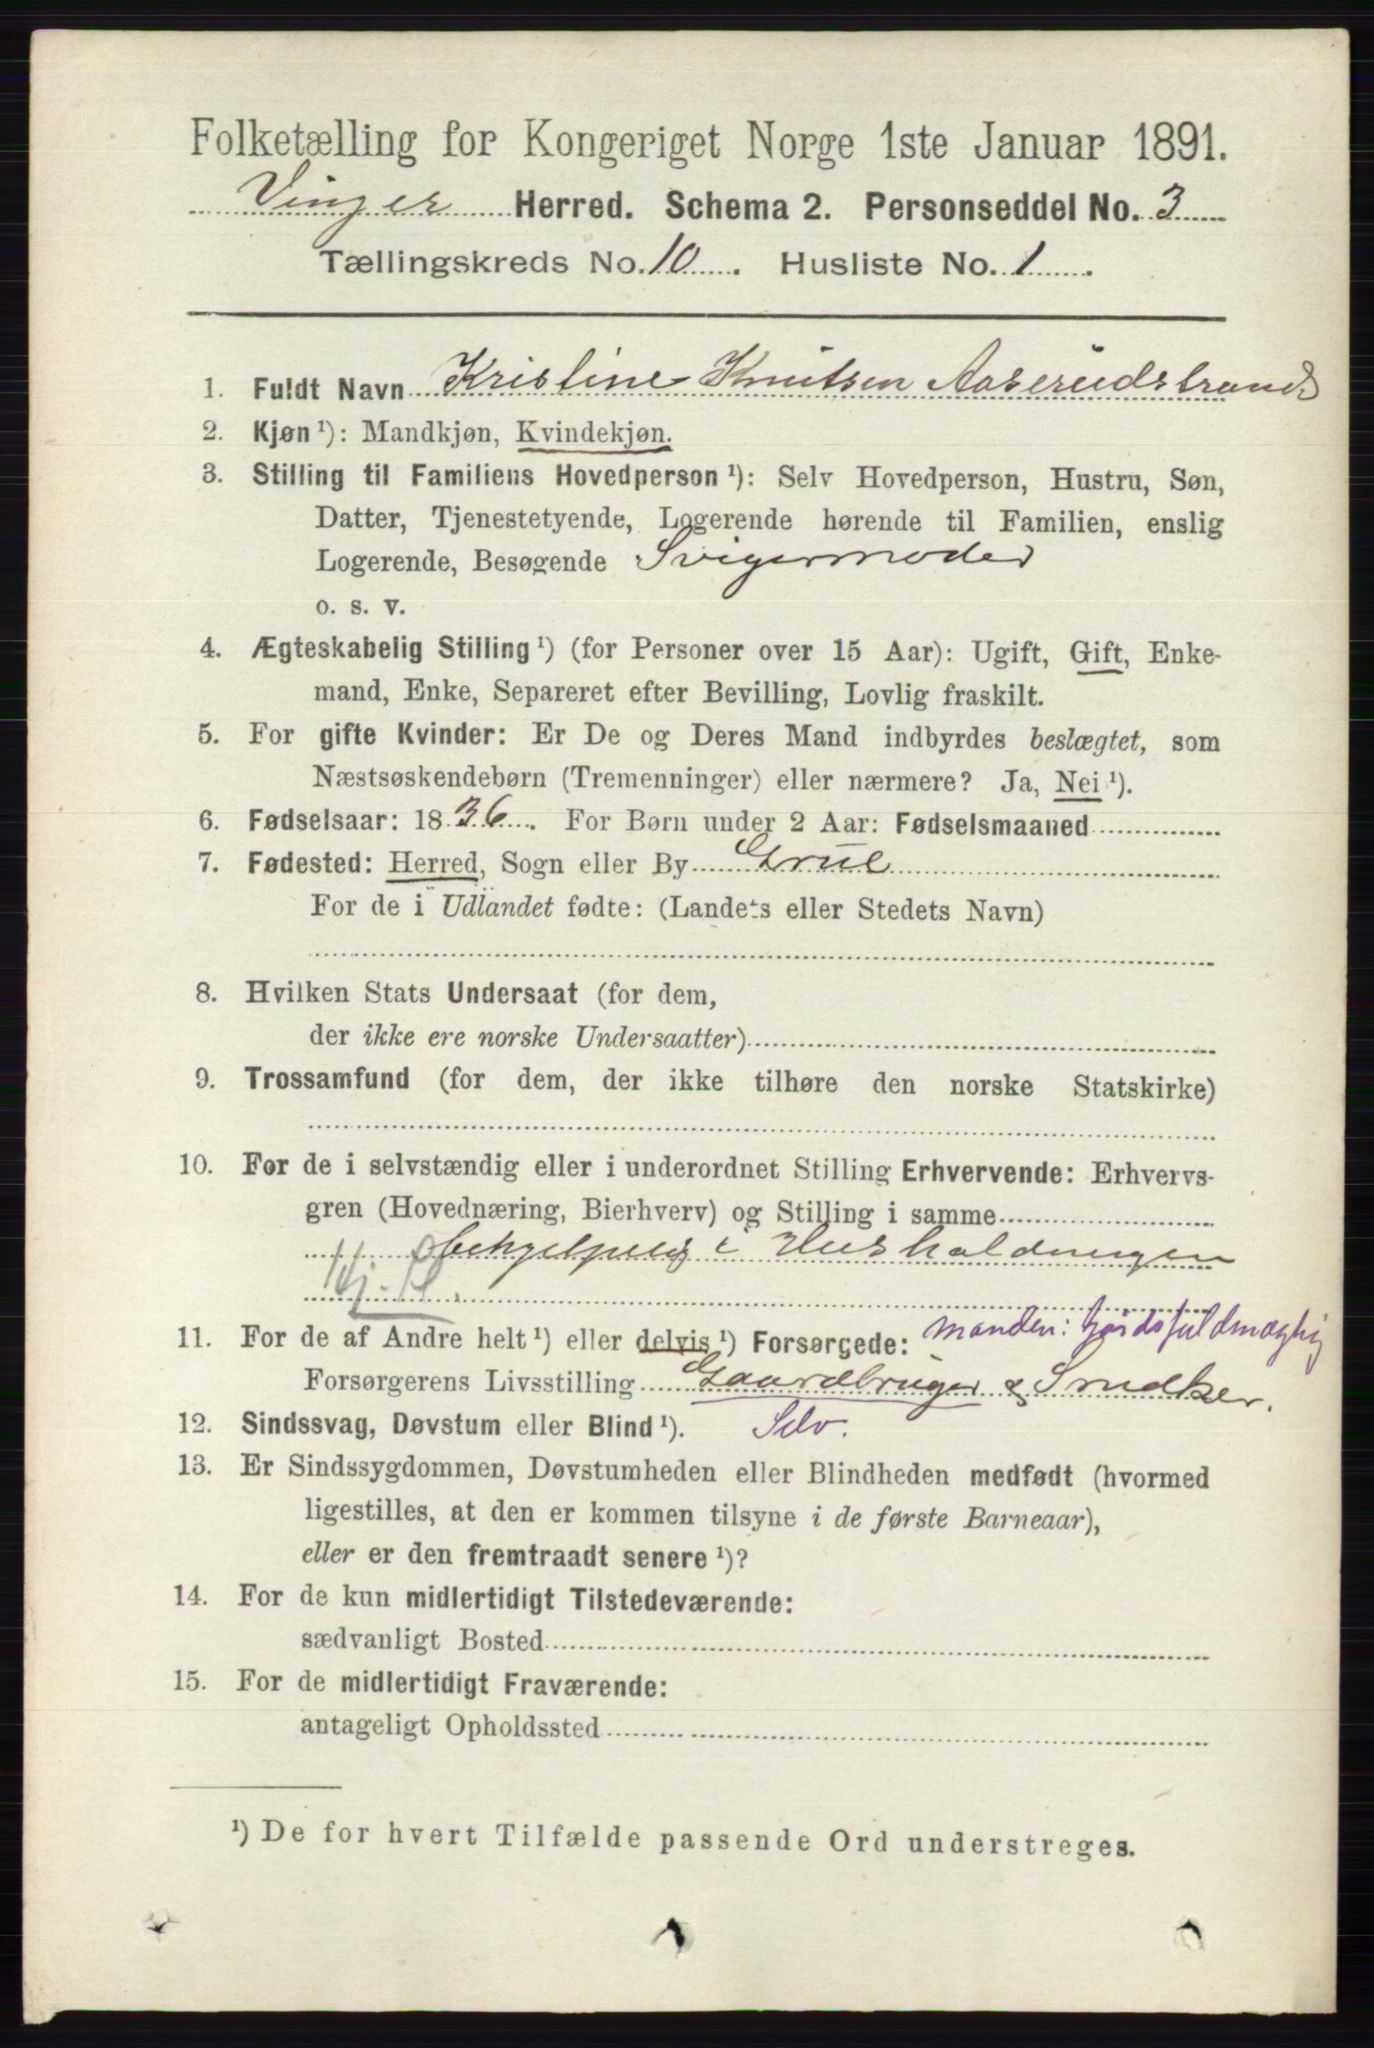 Folketælling for Kongeriget Norge 1ste Januar 1891.
Vinger Herred. Schema 2. Personseddel No. 3
Tællingskreds No. 10. Husliste No. 1.
1. Fuldt Navn Kristine Knutsen Aaserudstrand
2. Kjøn ¹): Mandkjøn, Kvindekjøn.
3. Stilling til Familiens Hovedperson ¹): Selv Hovedperson, Hustru, Søn,
Datter, Tjenestetyende, Logerende hørende til Familien, enslig
Logerende, Besøgende Svigermoder
o. s. v.
4. Ægteskabelig Stilling ¹) (for Personer over 15 Aar): Ugift, Gift, Enke-
mand, Enke, Separeret efter Bevilling, Lovlig fraskilt.
5. For gifte Kvinder: Er De og Deres Mand indbyrdes beslægtet, som
Næstsøskendebørn (Tremenninger) eller nærmere? Ja, Nei ¹).
6. Fødselsaar: 1836. For Børn under 2 Aar: Fødselsmaaned
7. Fødested: Herred, Sogn eller By Grue
For de i Udlandet fødte: (Landets eller Stedets Navn)
8. Hvilken Stats Undersaat (for dem,
der ikke ere norske Undersaatter)
9. Trossamfund (for dem, der ikke tilhøre den norske Statskirke)
10. For de i selvstændig eller i underordnet Stilling Erhvervende: Erhvervs-
gren (Hovednæring, Bierhverv) og Stilling i samme
behjelpelig i Husholdningen
Hj. H.
11. For de af Andre helt ¹) eller delvis ¹) Forsørgede: manden:
Forsørgerens Livsstilling Gaardbruger & Snedker.
12. Sindssvag, Døvstum eller Blind ¹). Selv.
13. Er Sindssygdommen, Døvstumheden eller Blindheden medfødt (hvormed
ligestilles, at den er kommen tilsyne i de første Barneaar),
eller er den fremtraadt senere ¹)?
14. For de kun midlertidigt Tilstedeværende:
sædvanligt Bosted
15. For de midlertidigt Fraværende:
antageligt Opholdssted
¹) De for hvert Tilfælde passende Ord understreges.